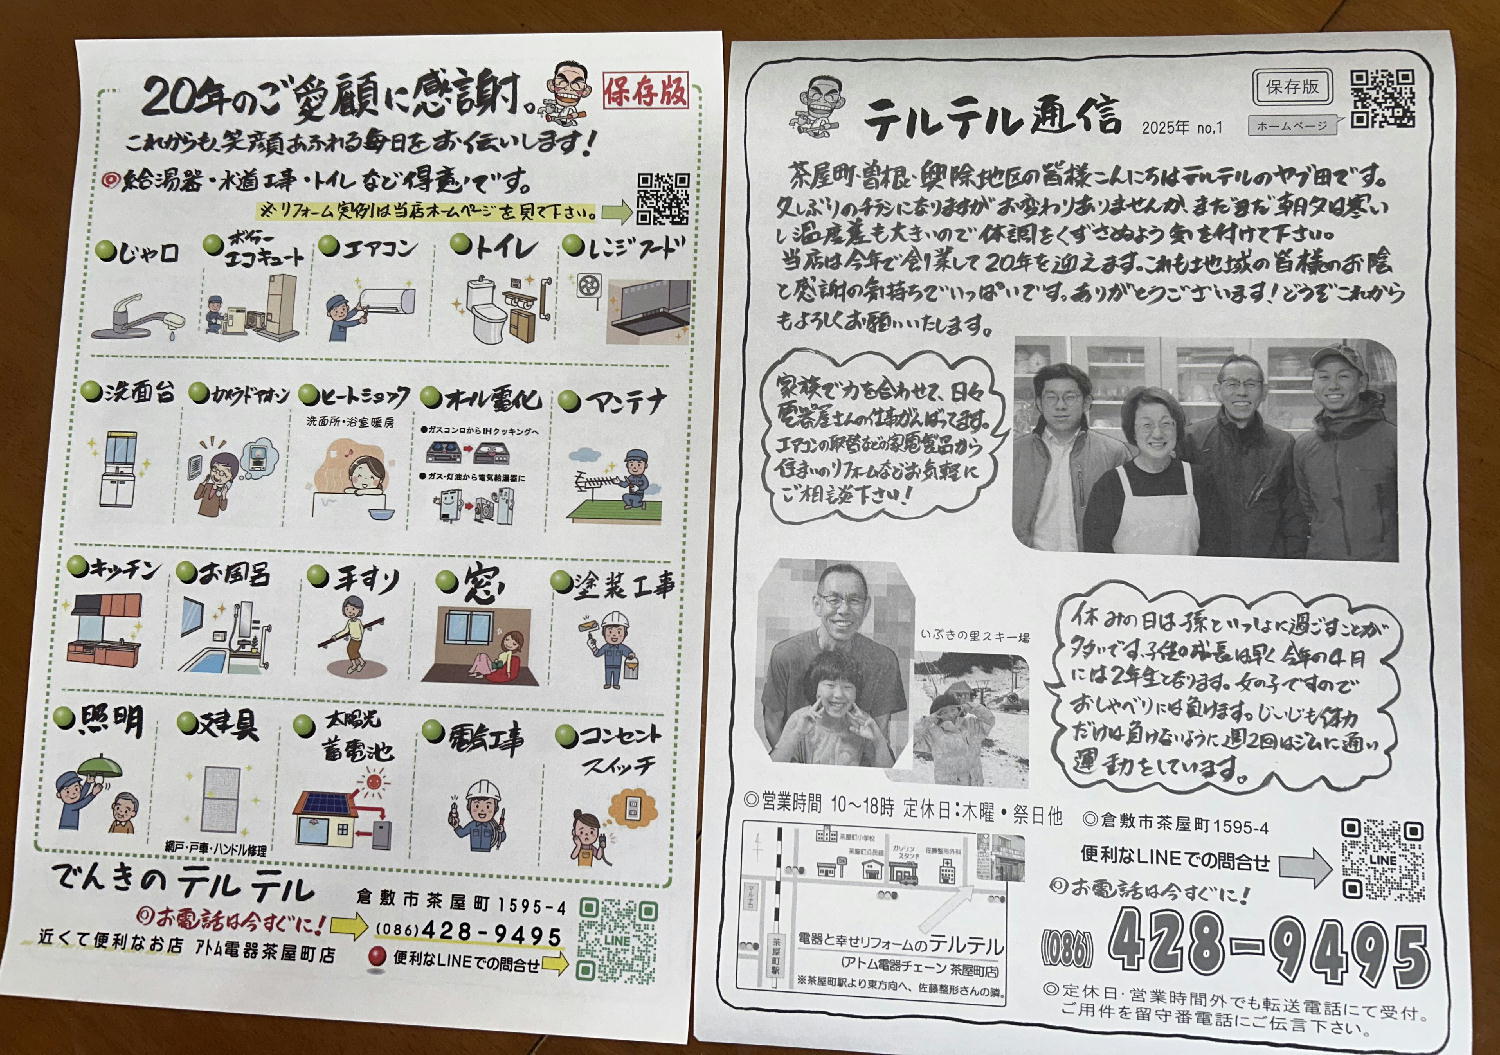 20年のご愛顧に感謝。
保存版
これからも、笑顔あふれる毎日をお伝いします!
◎給湯器・水道工事・トイレなど得意です。
※リフォーム実例は当店ホームページを見て下さい。
じゃ口
ボイラー
エコキュート
エアコン
トイレ
レンジフード
洗面台
カメラドアホン
ヒートショック
洗面所・浴室暖房
オール電化
●ガスコンロからIHクッキングへ
●ガス・灯油から電気給湯器に
アンテナ
キッチン
お風呂
手すり
窓
塗装工事
照明
建具
網戸・戸車・ハンドル修理
太陽光
蓄電池
電気工事
コンセント
スイッチ
でんきのテルテル
倉敷市茶屋町1595-4
◎お電話は今すぐに!
(086)428-9495
近くて便利なお店 アトム電器茶屋町店
便利なLINEでの問合せ
LINE
テルテル通信
2025年 no.1
保存版
ホームページ
茶屋町、曽根、興除地区の皆様こんにちはテルテルのヤブ田です。
久しぶりのチラシになりますがお変わりありませんか、まだまだ朝夕は寒い
し温度差も大きいので体調をくずさぬよう気を付けて下さい。
当店は今年で創業して20年を迎えます。これも地域の皆様のお陰
と感謝の気持ちでいっぱいです。ありがとうございます!どうぞこれから
もよろしくお願いいたします。
家族で力を合わせて、日々
電器屋さんの仕事がんばってます。
エアコンの取替などの家電製品から
住まいのリフォームなどお気軽に
ご相談下さい!
いぶきの里スキー場
休みの日は孫といっしょに過ごすことが
多いです、子供の成長は早く今年の4月
には2年生となります。女の子ですので
おしゃべりには負けます。じぃじも体力
だけは負けないように週2回はジムに通い
運動をしています。
◎営業時間 10～18時 定休日:木曜・祭日他
茶屋町小学校
茶屋町公民館
ガソリン
スタンド
佐藤整形外科
マルナカ
茶屋町駅
電器と幸せリフォームのテルテル
(アトム電器チェーン 茶屋町店)
※茶屋町駅より東方向へ、佐藤整形さんの隣。
◎倉敷市茶屋町1595-4
便利なLINEでの問合せ
LINE
◎お電話は今すぐに!
(086)428-9495
◎定休日・営業時間外でも転送電話にて受付。
ご用件を留守番電話にご伝言下さい。